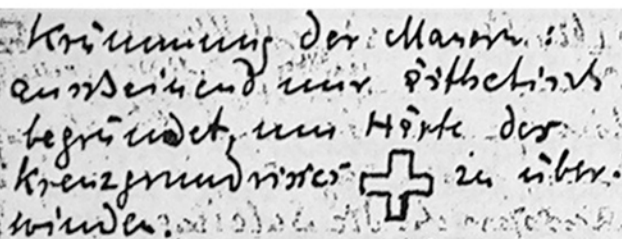 Krümmung der Mauern:
anscheinend nur ästhetisch
begründet, um Härte des
Kreuzgrundrisses zu über-
winden.